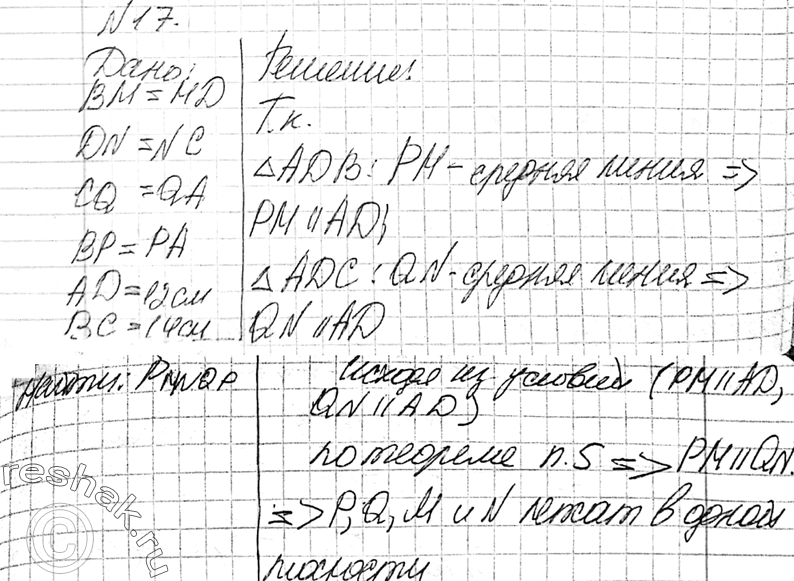 N 17.
Дано:
BM = MD
DN = NC
CQ = QA
BP = PA
AD = 12 см
BC = 14 см
Найти: PMNQP
Решение:
Т.к.
△ADB: PM - средняя линия =>
PM || AD;
△ADC: QN - средняя линия =>
QN || AD
исходя из условий (PM || AD,
QN || AD)
по теореме п.5 => PM || QN.
=> P, Q, M и N лежат в одной
плоскости
reshak.ru
©